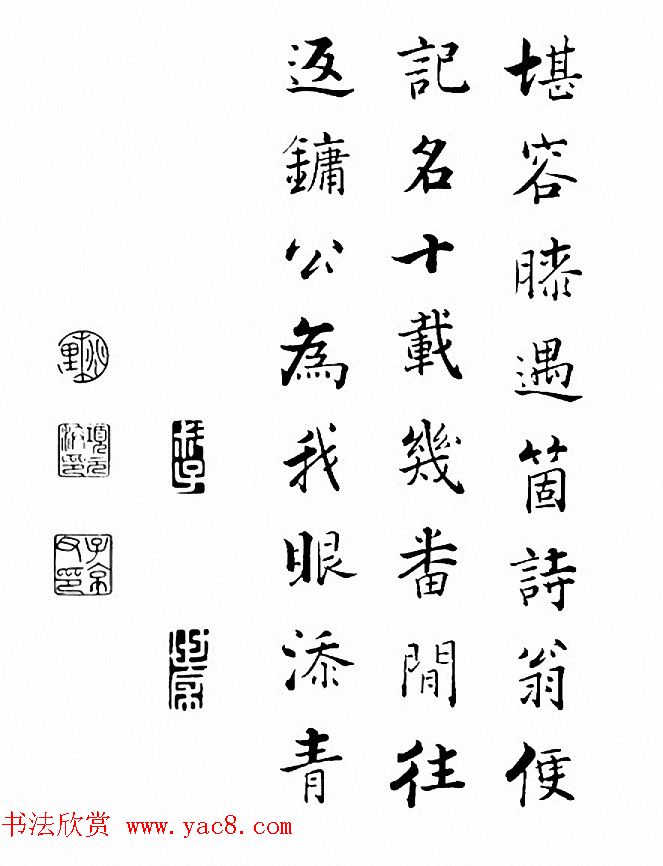 堪容膝遇箇詩翁便
記名十載幾番閒往
返鏞公為我眼添青
項元汴印
子京父印
书法欣赏 www.yac8.com